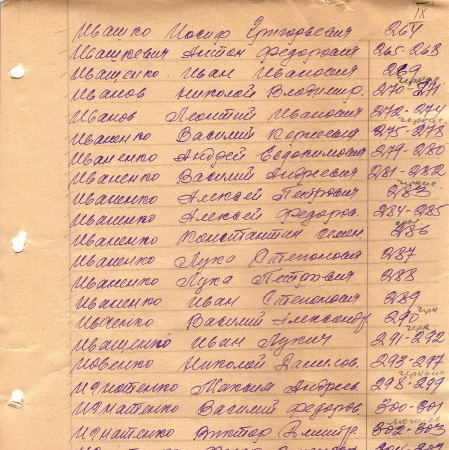 IX
Ивашко Иосиф Григорьевич 264
Ивашкевич Антон Федорович 265-268
Иващенко Иван Иванович 269
Иванов Николай Владимир. 270-271
Иванов Леонтий Иванович 272-274
Иваненко Василий Корнеевич 275-278
Иваненко Андрей Евдокимович 279-280
Иваненко Василий Андреевич 281-282
Иваненко Алексей Петрович 283
Иваненко Алексей Федоров. 284-285
Иваненко Константин Семен 286
Иваненко Лука Степанович 287
Иваненко Лука Петрович 288
Иваненко Иван Степанович 289
Ивченко Василий Александр. 290
Иващенко Иван Лукич 291-292
Иовенко Николай Данилов. 293-297
Игнатенко Максим Андреев. 298-299
Игнатенко Василий Федоров 300-301
Игнатенко Виктор Дмитр. 302-303